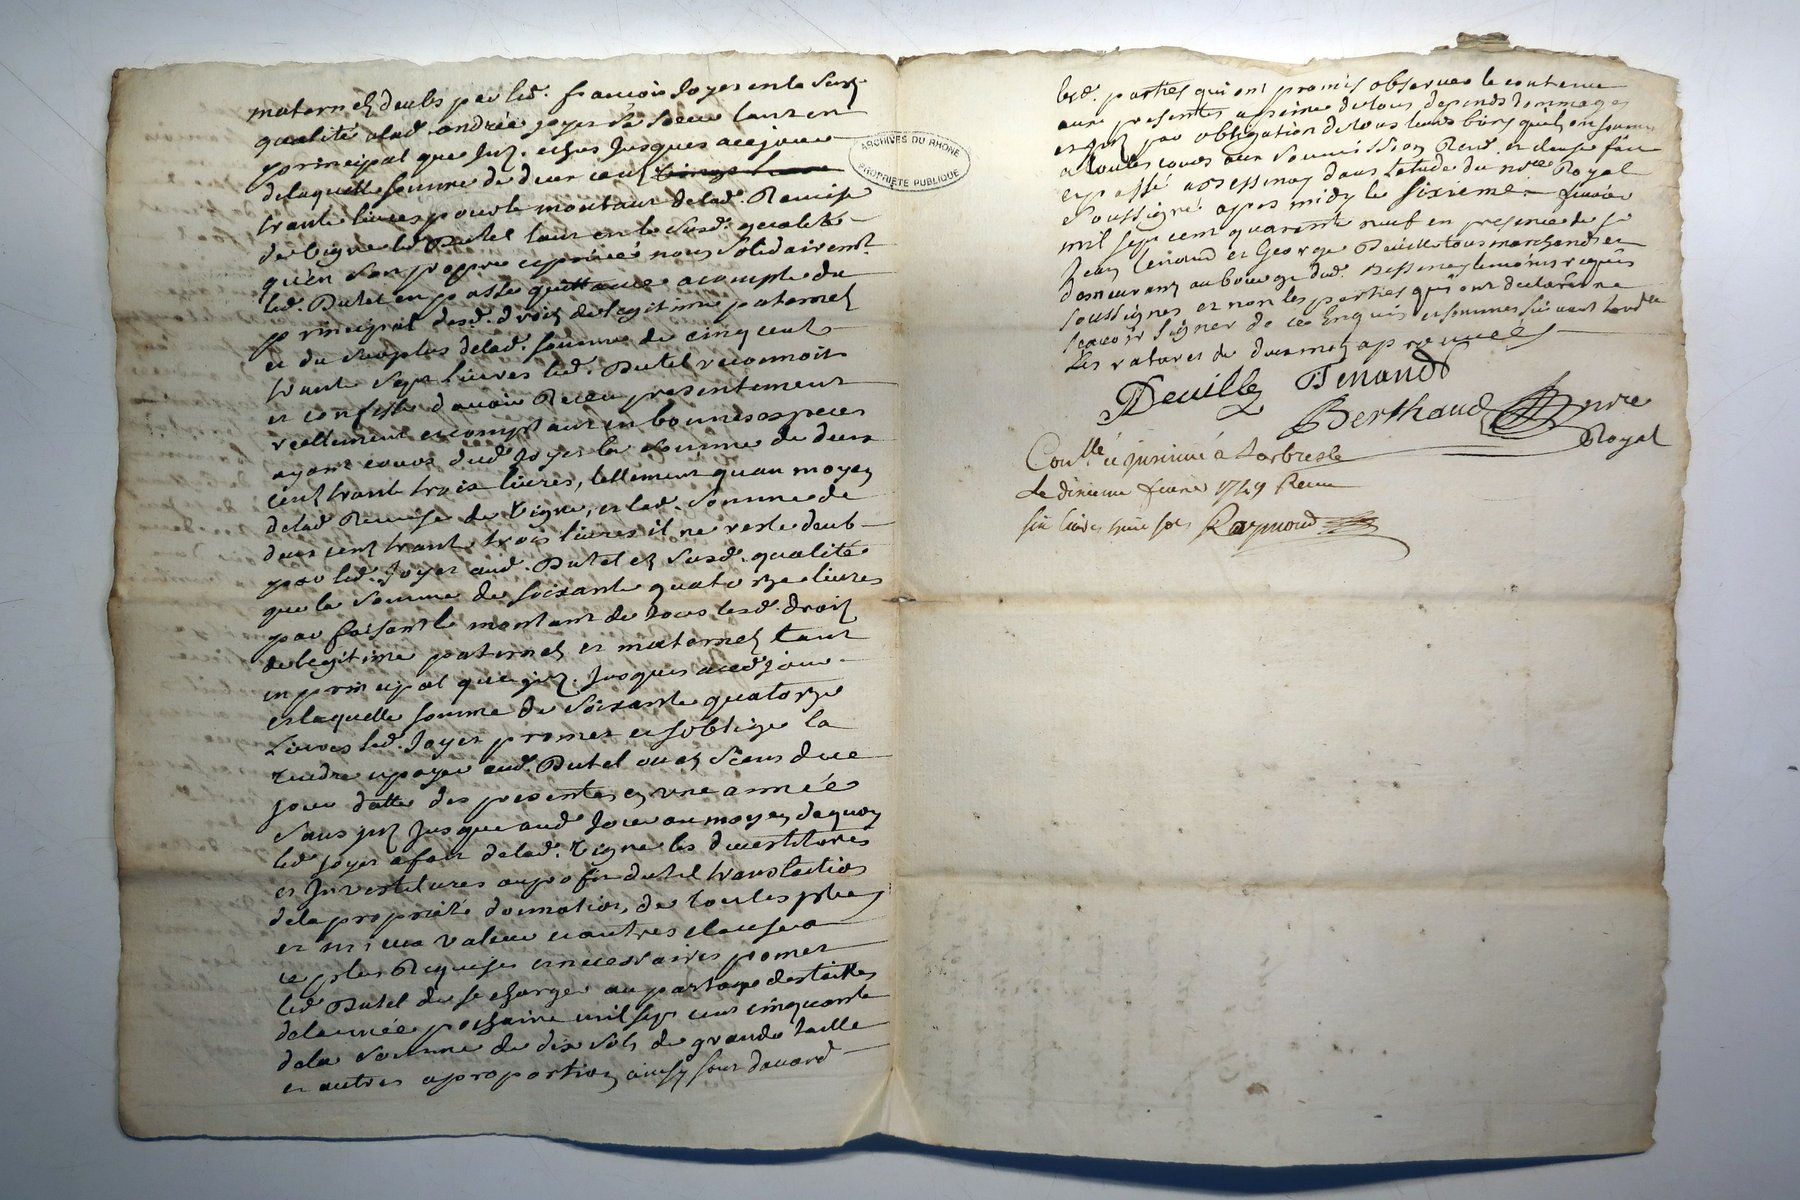 maternels deubs par led. francois Joyer en la Susd.
qualité alad. andrée Joyer sa soeur tant en
principal que Jnz. echus Jusques a ce jour
de laquelle somme de deux cent
trante livres pour le montant de lad. Remise
de vigne led. Dutel tant en la Susd. qualité
qu'en son propre et privé nous solidairemt.
led. Dutel en passe quittance acompte du
principal desd. droits de legitime paternels
et du surplus de lad. somme de cinq cent
trante sept livres led. Dutel reconnoit
et confesse d'avoir Receu presentement
reellement et comptant en bonnes especes
ayant cours dud. Joyer la somme de deux
cent trante trois livres, tellement quau moyen
de lad. Remise de vigne, et lad. somme de
deux cent trante trois livres il ne reste deub
par led. Joyer aud. Dutel en Susd. qualité
que la somme de soixante quatorze livres
parfaisant le montant de tous lesd. droits
de legitime paternels et maternels tant
en principal que jnz. Jusques a ced. jour
et laquelle somme de soixante quatorze
Livres led. Joyer promet et s'oblige la
rendre et payer aud. Dutel ou es Siens du
jour datte des presentes en une année
sans jnz. Jusque aud. Jour au moyen de quoy
led. Joyer a fait de lad. vigne les devestitures
et Jnvestitures au profit dutel translation
de la proprieté donnation, de toutes plus
et mieux value et autres clauses a
ce plus Requises et necessaires promet
led. Dutel de se charger au partage des tailles
de l'année prochaine mil sept cent cinquante
de la somme de dix sols de grande taille
et autres a proportion ainsy sont d'accord
lesd. parties qui ont promis observer le contenu
aux presentes a peine de tous depends dommages
et jnz. par obligation de tous leurs biens quils ont soumis
a toutes cours aux soumission Rend. et clause fait
et passé a Bessenay dans l'etude du nre Royal
soussigné apres midy le sixieme fevrier
mil sept cent quarante neuf en presence de Sr
Jean Tenand et George Deville tous marchands et
demeurant au bourg dud. Bessenay temoins requis
soussignes et non les parties qui ont declaré ne
scavoir signer de ce Enquis et sommes suivant lord.ce
Les ratures de deux mots aprouvées
Deville Tenand
Berthaud nre
Royal
Coull.é et jnsinué a Larbresle
Le dixieme fevrier 1749 Receu
six livres huit sols Raymond
ARCHIVES DU RHÔNE
PROPRIÉTÉ PUBLIQUE